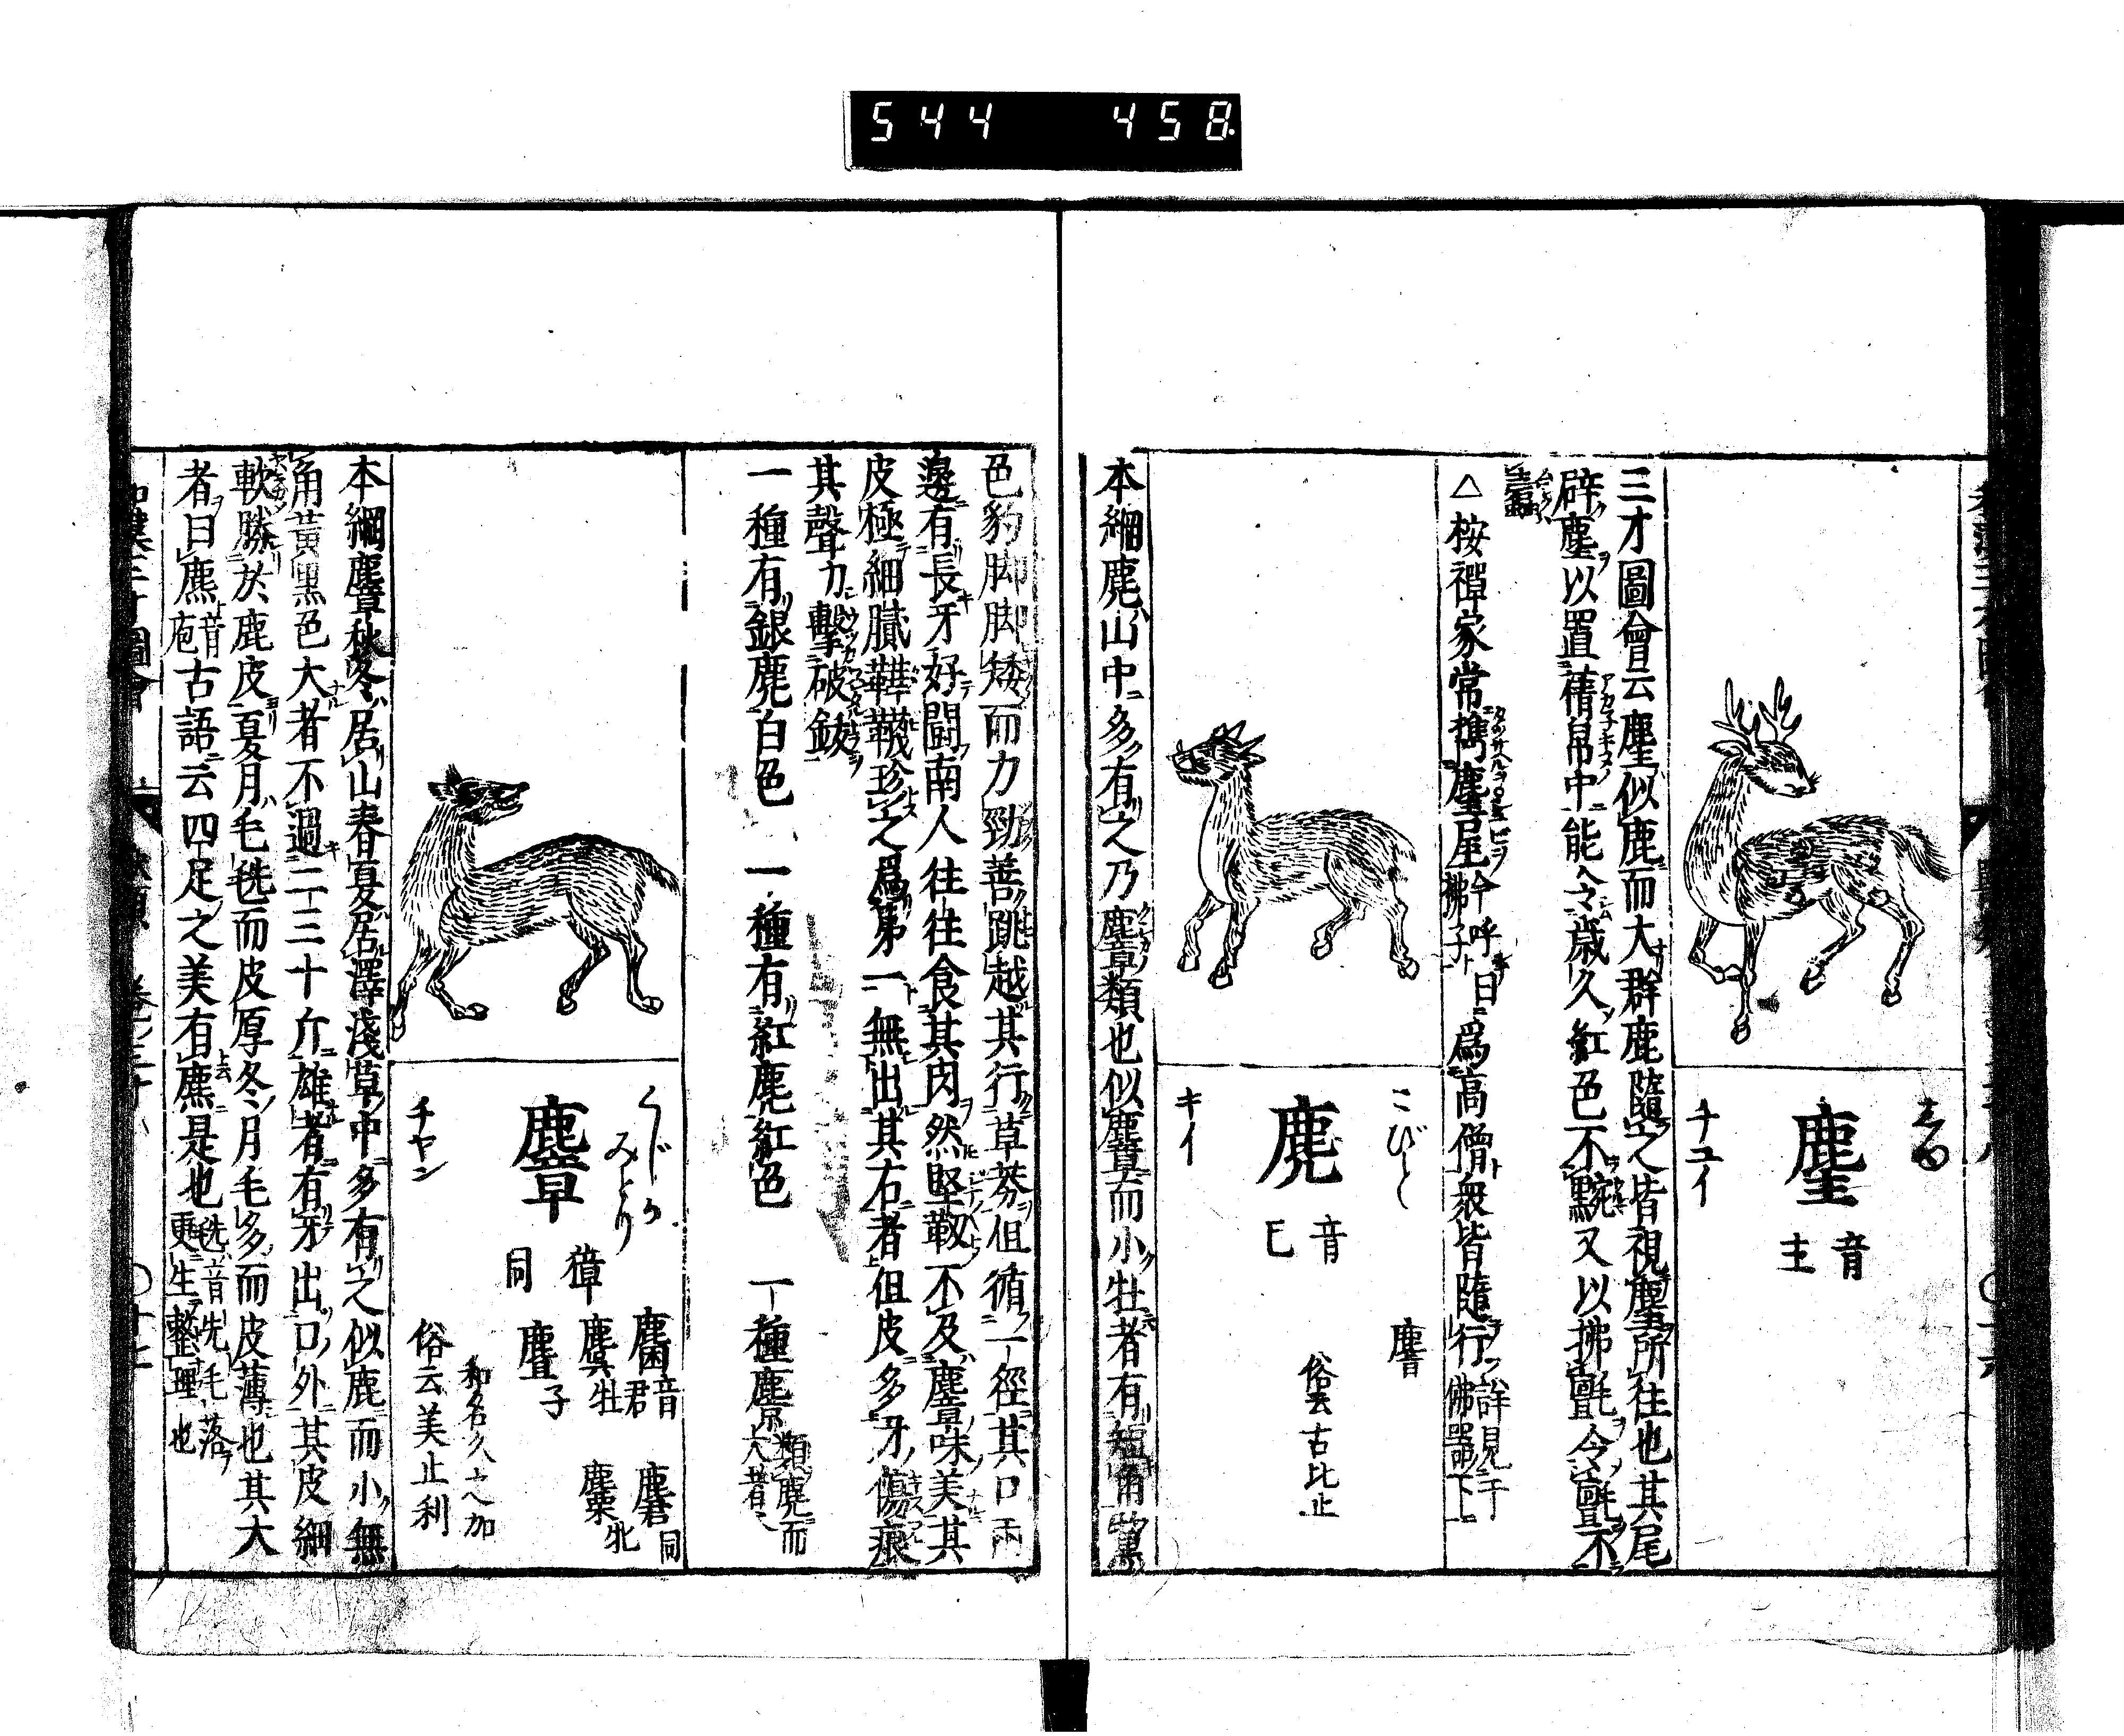 544 458
麈
音主
チユイ
三才圖會云麈似鹿而大群鹿隨之皆視麈所往也其尾
辟塵以置蒨帛中能令歲久紅色不黦又以拂氈令氈不
蠧
△按禪家常携麈尾今呼曰拂子爲高僧衆皆隨行詳見于佛噐下
こびと
麂
音己
キイ
俗云古比止
本綱麂山中多有之乃麞類也似麞而小牡者有短角黧
色豹脚脚矮而力勁善跳越其行草莽但循一徑其口兩
邊有長牙好闘南人往往食其肉然堅靱不及麞味美其
皮極細膩鞾韈珍之爲第一無出其右者但皮多牙傷痕
其聲力擊破鈸
一種有銀麂白色 一種有紅麂紅色 一種麖類麂而大者
くじか
みどり
麞
獐同
麕音君
麏同
麌牡
麜牝
麆子
和名久之加
俗云美止利
チヤン
本綱麞秋冬居山春夏居澤淺草中多有之似鹿而小無
角黃黑色大者不過二三十斤雄者有牙出口外其皮細
軟勝於鹿皮夏月毛毨而皮厚冬月毛多而皮薄也其大
者曰麃音庖古語云四足之美有麃是也毨音洗毛落更生整理也